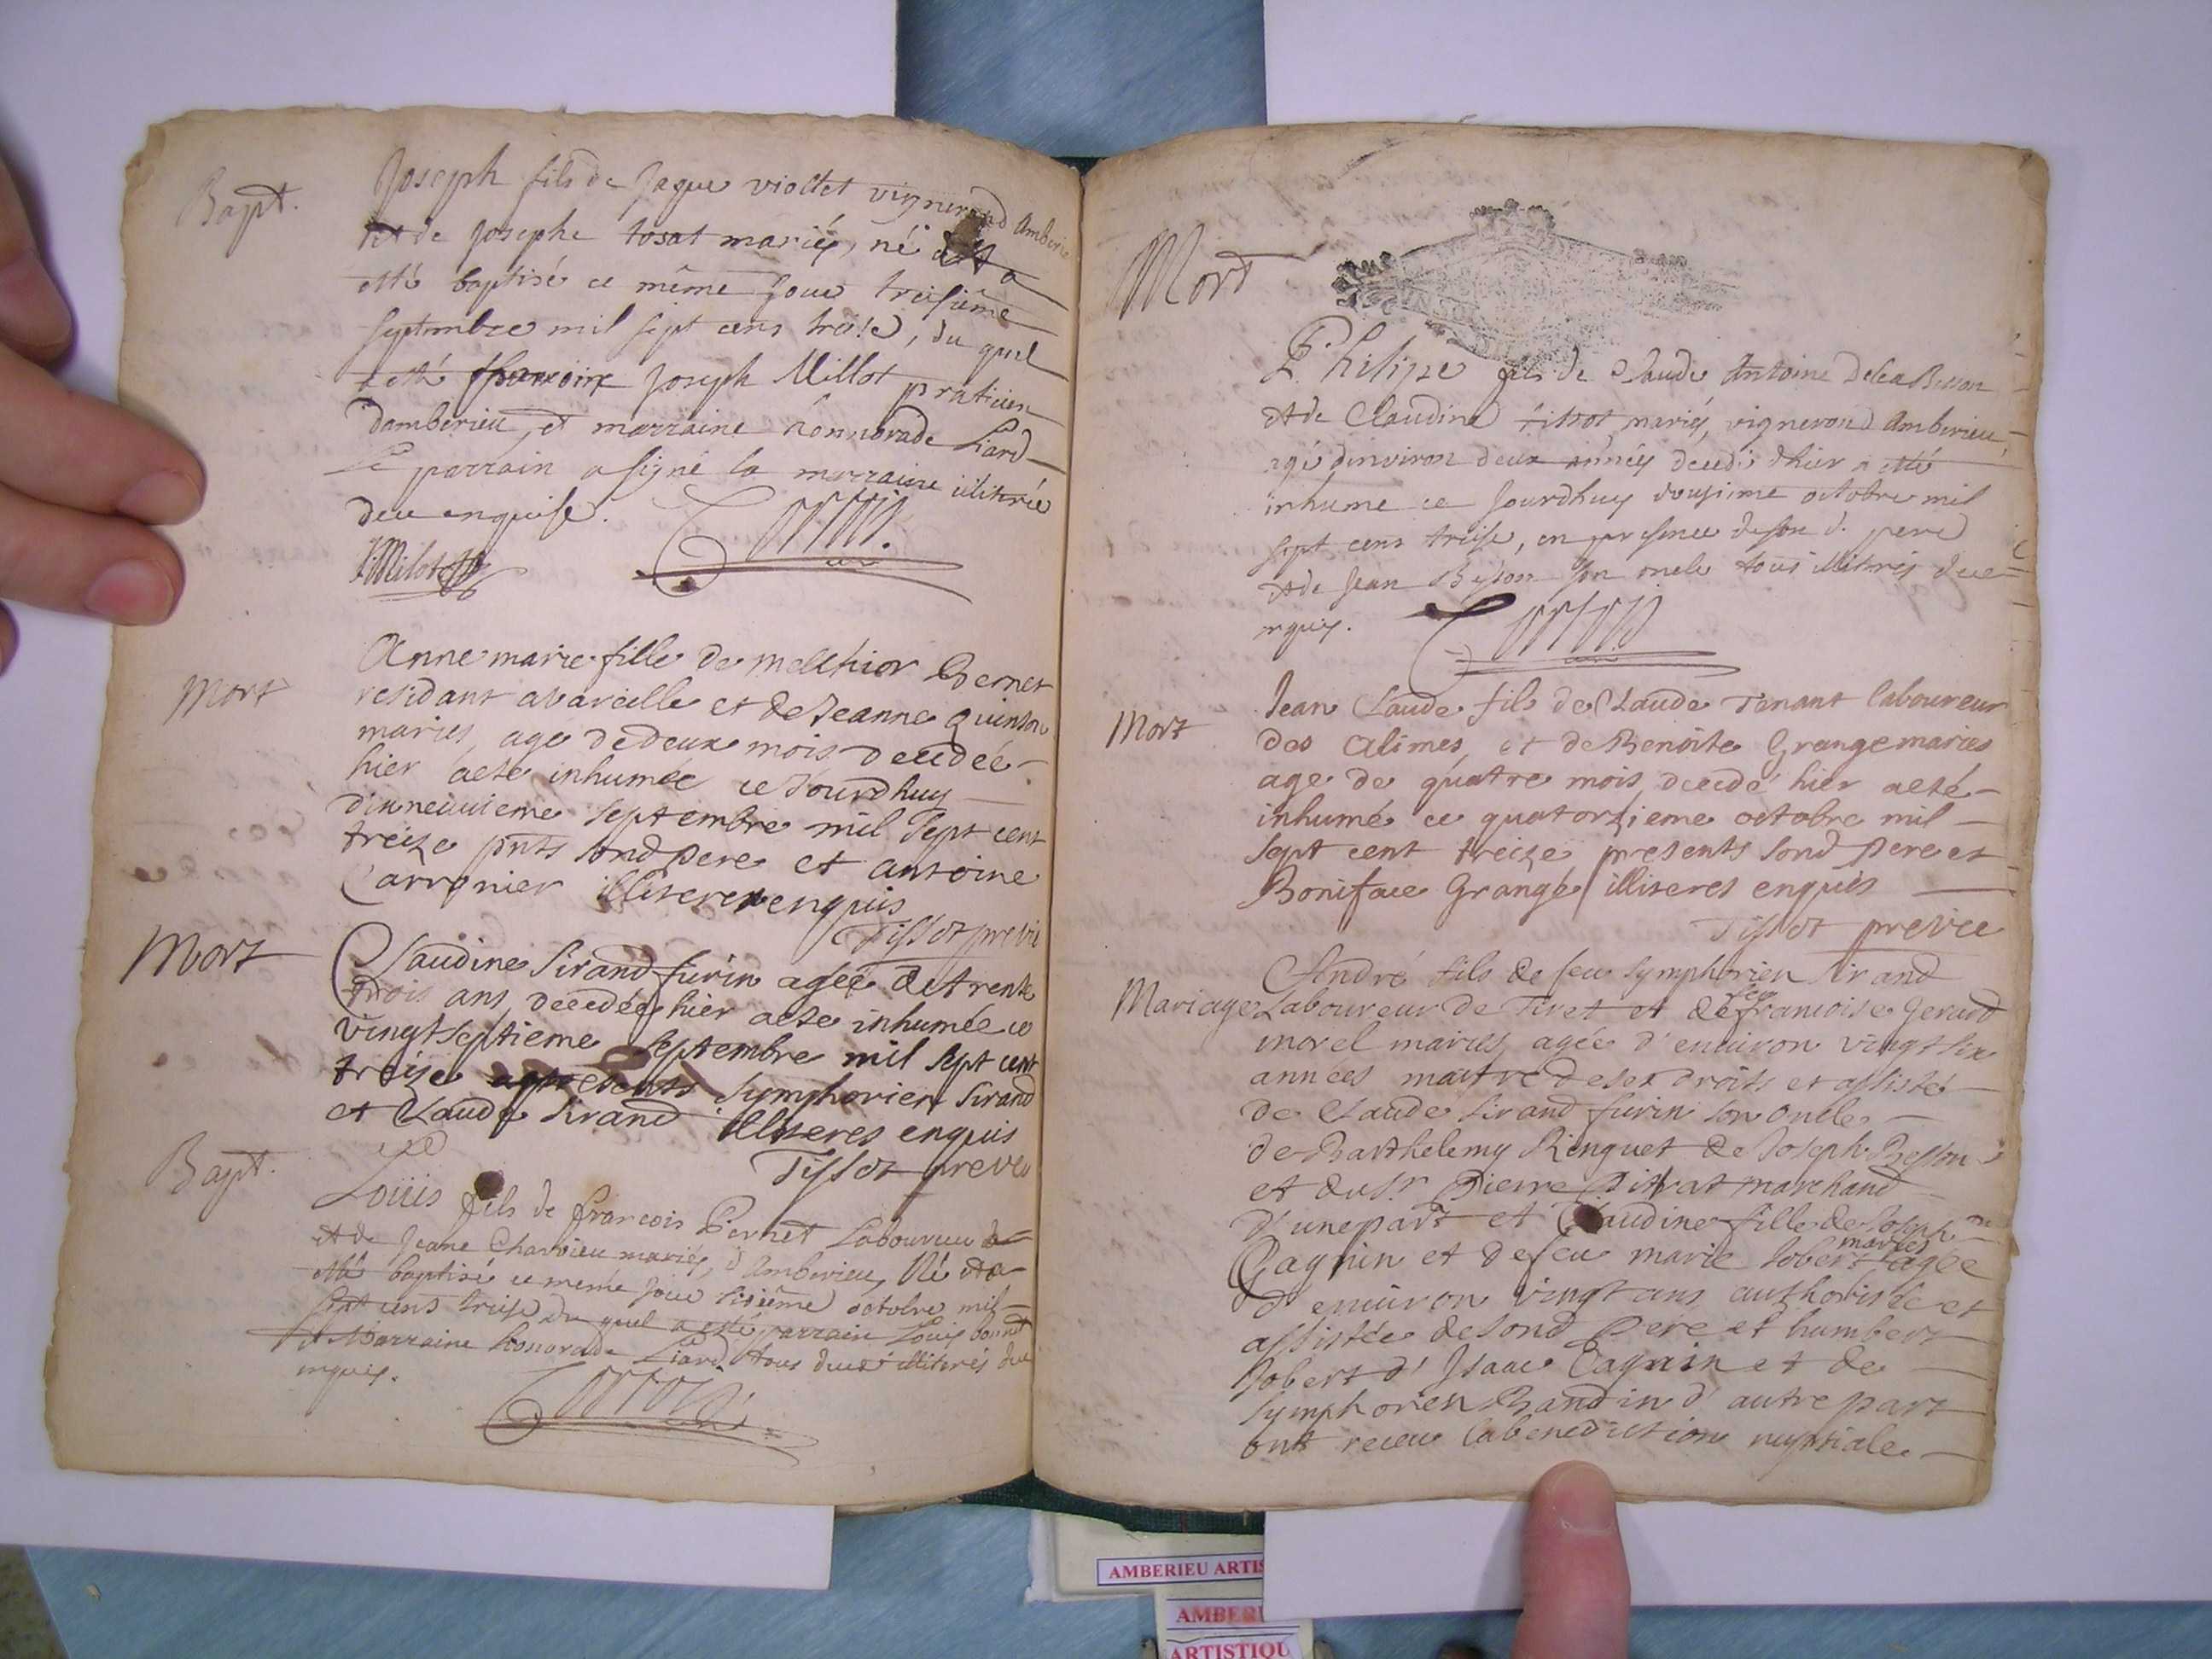 Bapt.
Joseph fils de Jaque viollet vigneron d'Amberieu
et de Josephe tosat mariés, né et a
etté baptisé ce même jour treisiême
septembre mil sept cens treise, du quel
a etté parroin Joseph Millot praticien
d'amberieu, et marraine honnorade Liard
Le parrain a signé la marraine illitrée
deue enquise.
JMilot
Mort
Anne marie fille de melchior Bernet
residant a vareille et de Jeanne quinson
maries, age de deux mois decedée
hier a eté inhumée ce Jourdhuy
dixneuvieme septembre mil sept cent
treize pnts sond pere et antoine
Carronier illiteres enquis
Tissot previc
Mort
Claudine Sirand furin agée de trente
trois ans, decedée hier a ete inhumée ce
vingt septieme septembre mil sept cent
treize presents Symphorien Sirand
et Claude Sirand illiteres enquis
Tissot previc
Bapt.
Loüis fils de françois Pernet Laboureur
et de Jeane Charvieu mariés, d'Amberieu, Né et a
etté baptisé ce meme jour sisiême octobre mil
sept cens treise du quel a esté parrain Louis bonnet
et Marraine honorade Liard tous deux illiterés due
enquis.
Mort
Philipe fils de Claude Antoine Besson
et de Claudine tissot mariés, vigneron d'Amberieu,
agé d'environ deux années decedé d'hier a etté
inhume ce Jourdhuy dousieme octobre mil
sept cens treise, en presence de son d. pere
et de Jean Besson son oncle tous illitrés deue
enquis.
Mort
Jean Claude fils de Claude Tenant laboureur
des alimes, et de Benoite Grange maries
age de quatre mois decedé hier a eté
inhumé ce quatorzieme octobre mil
sept cent treize presents sond pere et
Boniface Grange illiteres enquis
Tissot previc
Mariage
André fils de feu Symphorien Sirand
Laboureur de Tiret et de feu francoise Jerard
morel maries, agée d'environ vingt six
années maitre de ses droits et assisté
de Claude Sirand furin son oncle
de Barthelemy Ringuet de Joseph Besson
et du Sr. Pierre Pitrat marchand
d'une part et Claudine fille de Joseph
Cagnin et de feu marie Jobert maries agée
d'environ vingt ans authorisée et
assistée de sond Pere et humbert
Jobert d'Isaac Cagnin et de
Symphorien Bandin d'autre part
ont receu la benediction nuptiale
AMBERIEU ARTIS
AMBERI
ARTISTIQU